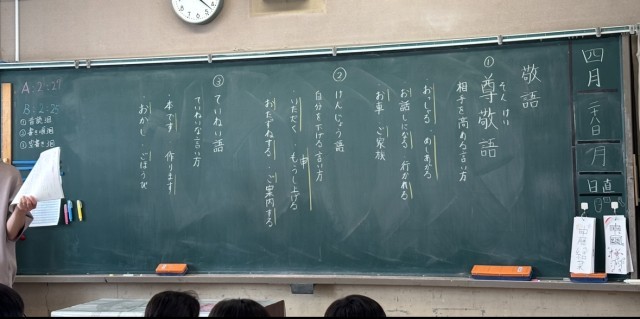 四月
二十八日
月
日直
敬語
① 尊敬語
そんけい
相手を高める言い方
・おっしゃる ・めしあがる
お話しになる 行かれる
お車 ご家族
② けんじょう語
自分を下げる言い方
いただく もうし上げる
申
おたずねする ご案内する
③ ていねい語
ていねいな言い方
・本です 作ります
・おかし ・ごほうび
A:2:24
B:2:25